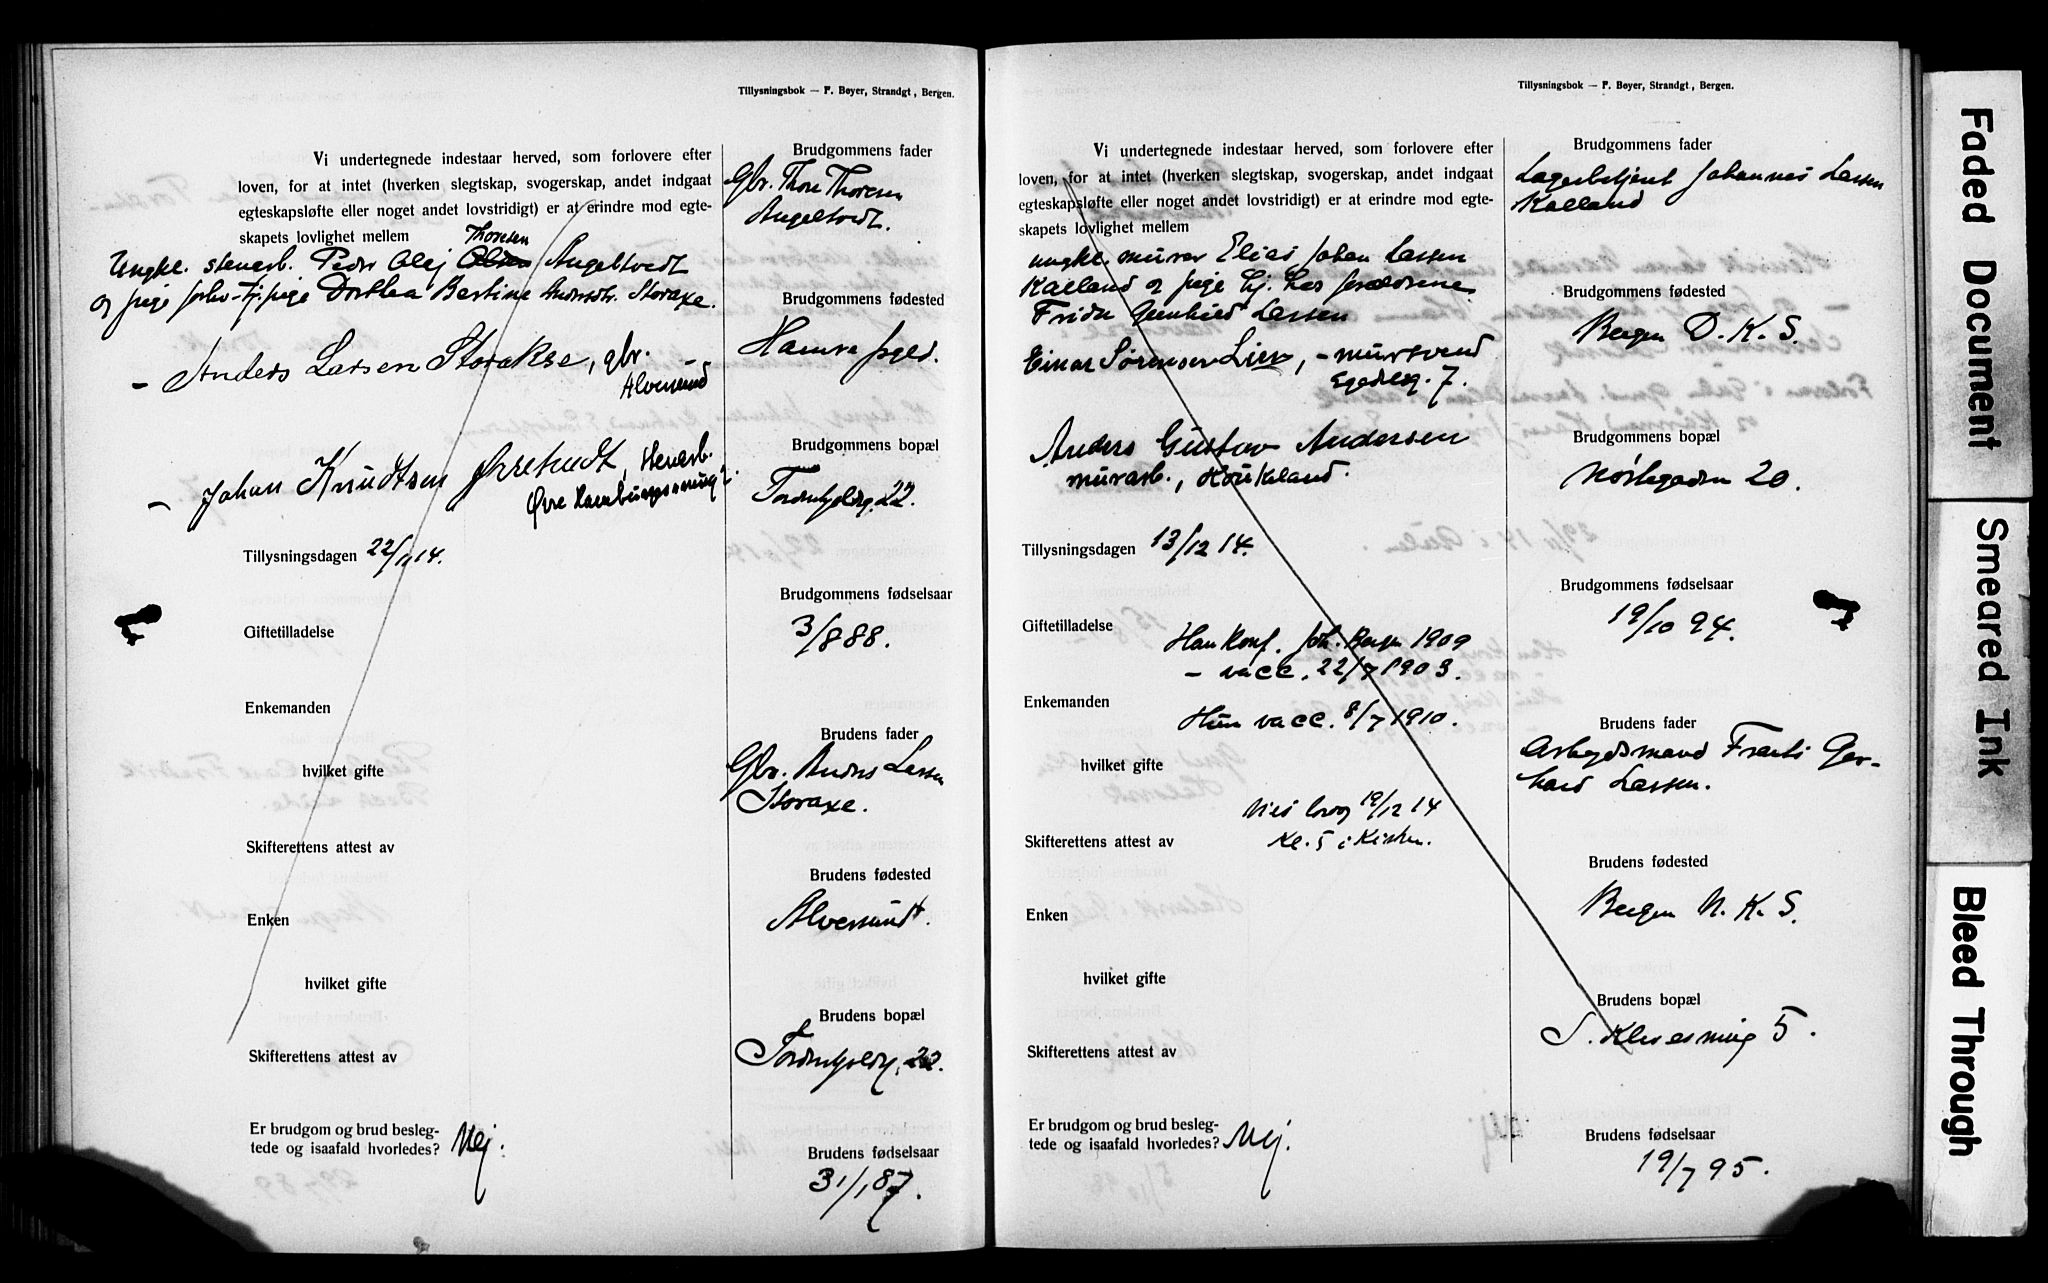 Tillysningsbok — F. Bøyer, Strandgt., Bergen.
Vi undertegnede indestaar herved, som forlovere efter
loven, for at intet (hverken slegtskap, svogerskap, andet indgaat
egteskapsløfte eller noget andet lovstridigt) er at erindre mod egte-
skapets lovlighet mellem Thoresen
Ungk. stenarb. Peder Olej Olsen Angeltvedt
og pige forhv. tj.pige Dorthea Bertine Andersdtr. Storaxe.
- Anders Larsen Storakse, gbr. -
Alversund
- Johan Knudtsen Ørretvedt, stenarb.
Øvre Hamburgsmug 2.
Tillysningsdagen 22/11 14.
Giftetilladelse
Enkemanden
hvilket gifte
Skifterettens attest av
Enken
hvilket gifte
Skifterettens attest av
Er brudgom og brud besleg-
tede og isaafald hvorledes? Nej.
Brudgommens fader
Gbr. Thore Thoresen
Angeltvedt.
Brudgommens fødested
Hamre pgld.
Brudgommens bopæl
Tordenskjoldsg. 22.
Brudgommens fødselsaar
3/8 88.
Brudens fader
Gbr. Anders Larsen
Storaxe.
Brudens fødested
Alversund.
Brudens bopæl
Tordenskjoldsg. 22.
Brudens fødselsaar
31/1 87.
Tillysningsbok — F. Bøyer, Strandgt., Bergen.
Vi undertegnede indestaar herved, som forlovere efter
loven, for at intet (hverken slegtskap, svogerskap, andet indgaat
egteskapsløfte eller noget andet lovstridigt) er at erindre mod egte-
skapets lovlighet mellem
ungk. murer Elias Johan Lassen
Kalland og pige hj. hos forældrene
Frida Gunhild Larsen
Einar Sørensen Lien, - mursvend
Egedesg. 7.
Anders Gustav Andersen
murarb., Houkeland.
Tillysningsdagen 13/12 14.
Giftetilladelse
Han konf. Joh. Bergen 1909
- vacc. 22/7 1903.
Enkemanden
Hun vacc. 8/7 1910.
hvilket gifte
Vies lørdag 19/12 14
Skifterettens attest av
Kl. 5 i Kirken.
Enken
hvilket gifte
Skifterettens attest av
Er brudgom og brud besleg-
tede og isaafald hvorledes? Nej.
Brudgommens fader
Lagerbetjent Johannes Lassen
Kalland
Brudgommens fødested
Bergen D. K. S.
Brudgommens bopæl
Nøstegaden 20.
Brudgommens fødselsaar
19/10 94.
Brudens fader
Arbejdsmand Frants Ger-
hard Larsen.
Brudens fødested
Bergen N. K. S.
Brudens bopæl
S. Klevesmug 5.
Brudens fødselsaar
19/7 95.
Faded Document
Smeared Ink
Bleed Through